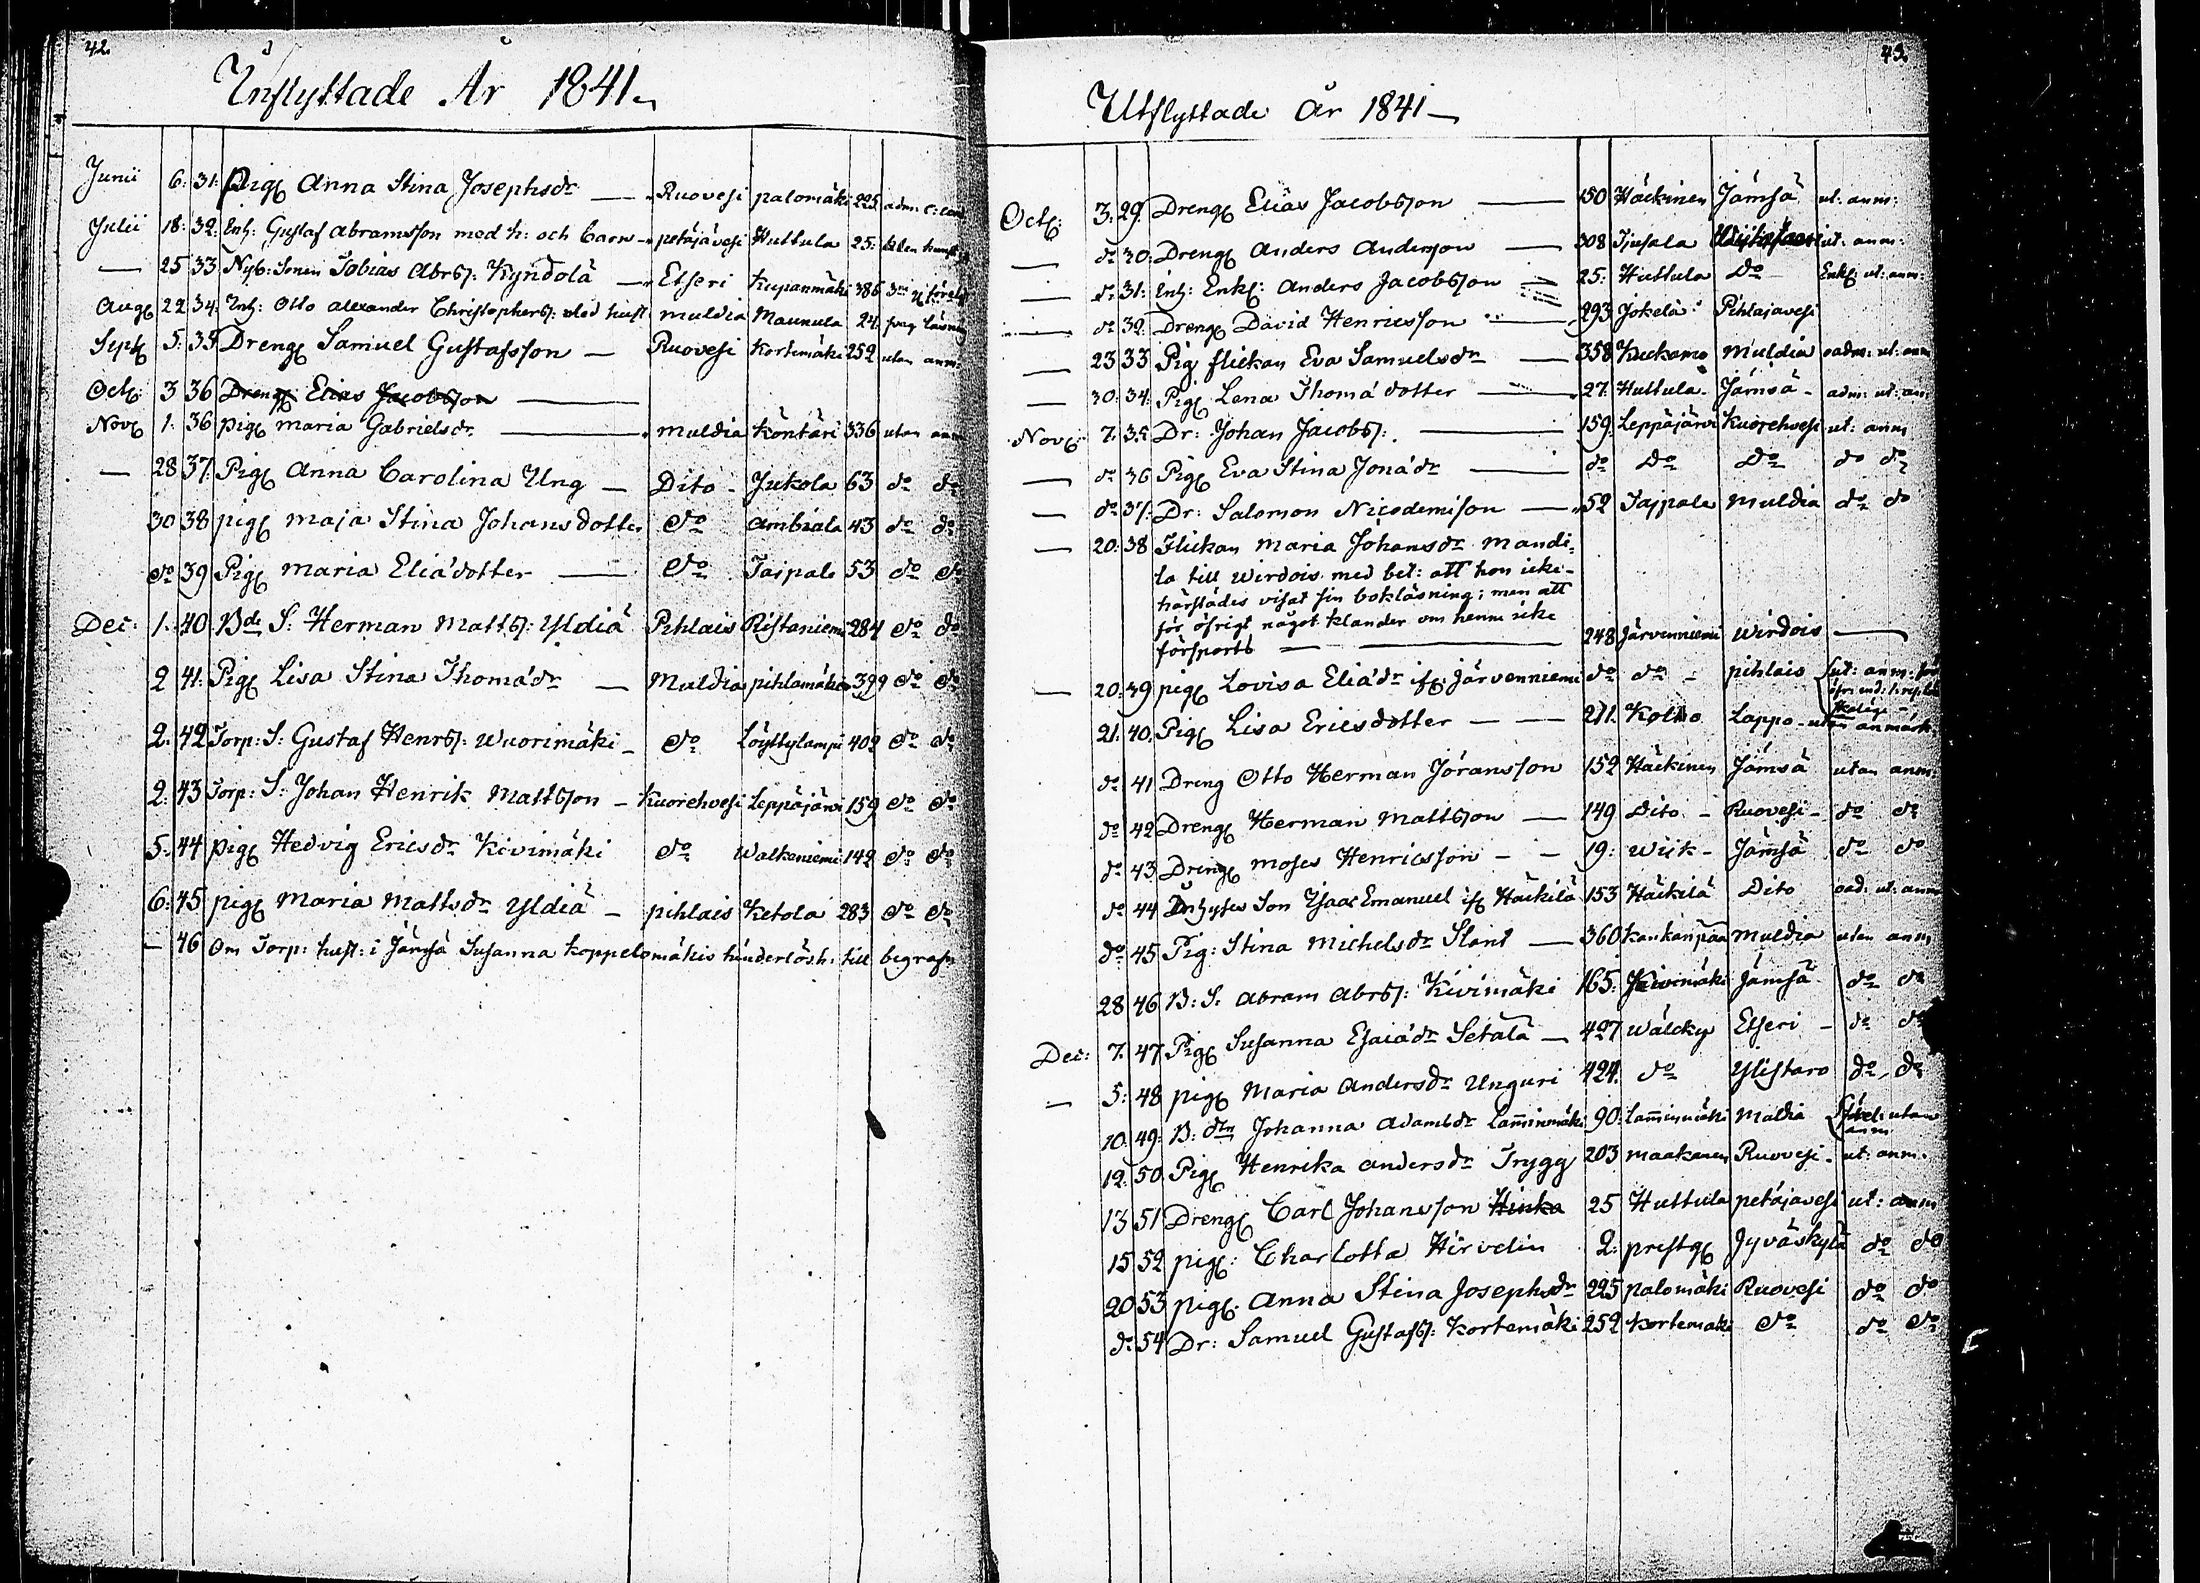 42
Inflyttade År 1841
Junii 6: 31: Pig Anna Stina Josephsdr Ruovesi palomäki 225 adm:
Julii 18: 32: Inh: Gustaf Abramsson med h: och barn petäjävesi Huttula 25:
25 33 Nyb: Sonen Tobias Abrss: Kyndolä Etseri Kupanmäki 386
Aug 22 34: Inh: Otto Alexander Christopherss: med hust muldia Maunula 24 svag läsning
Sept 5: 35 Dreng Samuel Gustafsson Ruovesi Kortemäki 252 utan anm:
Oct: 3 36 Dreng Elias Jacobsson
Nov 1: 36 pig maria Gabrielsdr muldia Köntäri 336 utan anm
28 37: Pig Anna Carolina Ung Dito Jukola 63 do do
30 38 pig maja Stina Johansdotter do ambiala 43 do do
do 39 Pig maria Eliædotter do Taipale 53 do do
Dec: 1: 40 Bde S: Herman Mattss: Yldiä Pihlais Ristaniemi 284 do do
2 41: Pig Lisa Stina Thomædr Muldia pihlamäki 399 do do
2: 42 Torp: S: Gustaf Henrss: Wuorimäki do Löyttylampi 402 do do
2: 43 Torp: S: Johan Henrik Mattsson Kuorehvesi Leppäjärvi 159 do do
5: 44 pig Hedvig Ericsdr Kivimäki do Walkeniemi 142 do do
6: 45 pig Maria Mattsdr Yldiä pihlais Ketola 283 do do
46 Om Torp: hust: i Jämsä Susanna Koppelomäkis hinderlösh: till begrafn
43
Utflyttade År 1841
Oct: 3: 29: Dreng Elias Jacobsson 150 Häckinen Jämsä ut: anm:
do 30: Dreng Anders Andersson 308 ut: anm:
do 31: Inh: Enkl: Anders Jacobsson 25: Huttula do Enkl: ut: anm:
do 32: Dreng David Henricsson 293 Jokela Pihlajavesi
23 33 Pig flickan Eva Samuelsdr 358 Kuckamo Muldia oadm: ut: anm
30: 34: Pig Lena Thomædotter 27: Huttula Jämsä adm: ut: an
Nov: 7: 35 Dr: Johan Jacobss: 159: Leppäjärvi Kuorehvesi ut: anm
do 36 Pig Eva Stina Jonædr do do do do do
do 37: Dr: Salomon Nicodemisson 52 Taipale Muldia do do
20: 38 Flickan Maria Johansdr Mandi-
la till Wirdois med bet: att hon icke
härstädes visat sin bokläsning; men att
för öfrigt något klander om henne icke
försports 248 Järvenniemi Wirdois
20: 39 pig Lovisa Eliædr ifr Järvenniemi do do pihlais ut: anm:
21: 40: Pig Lisa Ericsdotter 271: Kolho Lappo utan anmärk:
do 41 Dreng Otto Herman Göransson 152 Häckinen Jämsä utan anm:
do 42 Dreng Herman Mattsson 149 Dito Ruovesi do do
do 43 Dreng Moses Henricsson 19: Wiik Jämsä do do
do 44 Inhyses Son Isaac Emanuel ifr Häckilä 153 Häckilä Dito oad: ut: anm
do 45 Pig: Stina Michelsdr Slant 360 Kankanpää Muldia utan anm
28 46 B: S: Abram Abrss: Kivimäki 165: Kivimäki Jämsä do do
Dec: 7: 47 Pig Susanna Esaiædr Setälä 427 Wälcky Etseri do do
5: 48 pig Maria Andersdr Unguri 424: do Ylistaro do do
10: 49: B: dtr Johanna Adamsdr Lam̄inmäki 90: Lam̄inmäki Muldia utan anm
12: 50 Pig Henrika Andersdr Trygg 203 maakanen Ruovesi ut: anm:
13 51 Dreng Carl Johansson Hinka 25 Huttula petäjavesi ut: anm
15 52 pig: Charlotta Hirvelin 2: prestg Jyväskylä do do
20 53 pig: Anna Stina Josephsdr 225 palomäki Ruovesi do do
do 54 Dr: Samuel Gustafss: Kortemäki 252 Kortemäki do do do